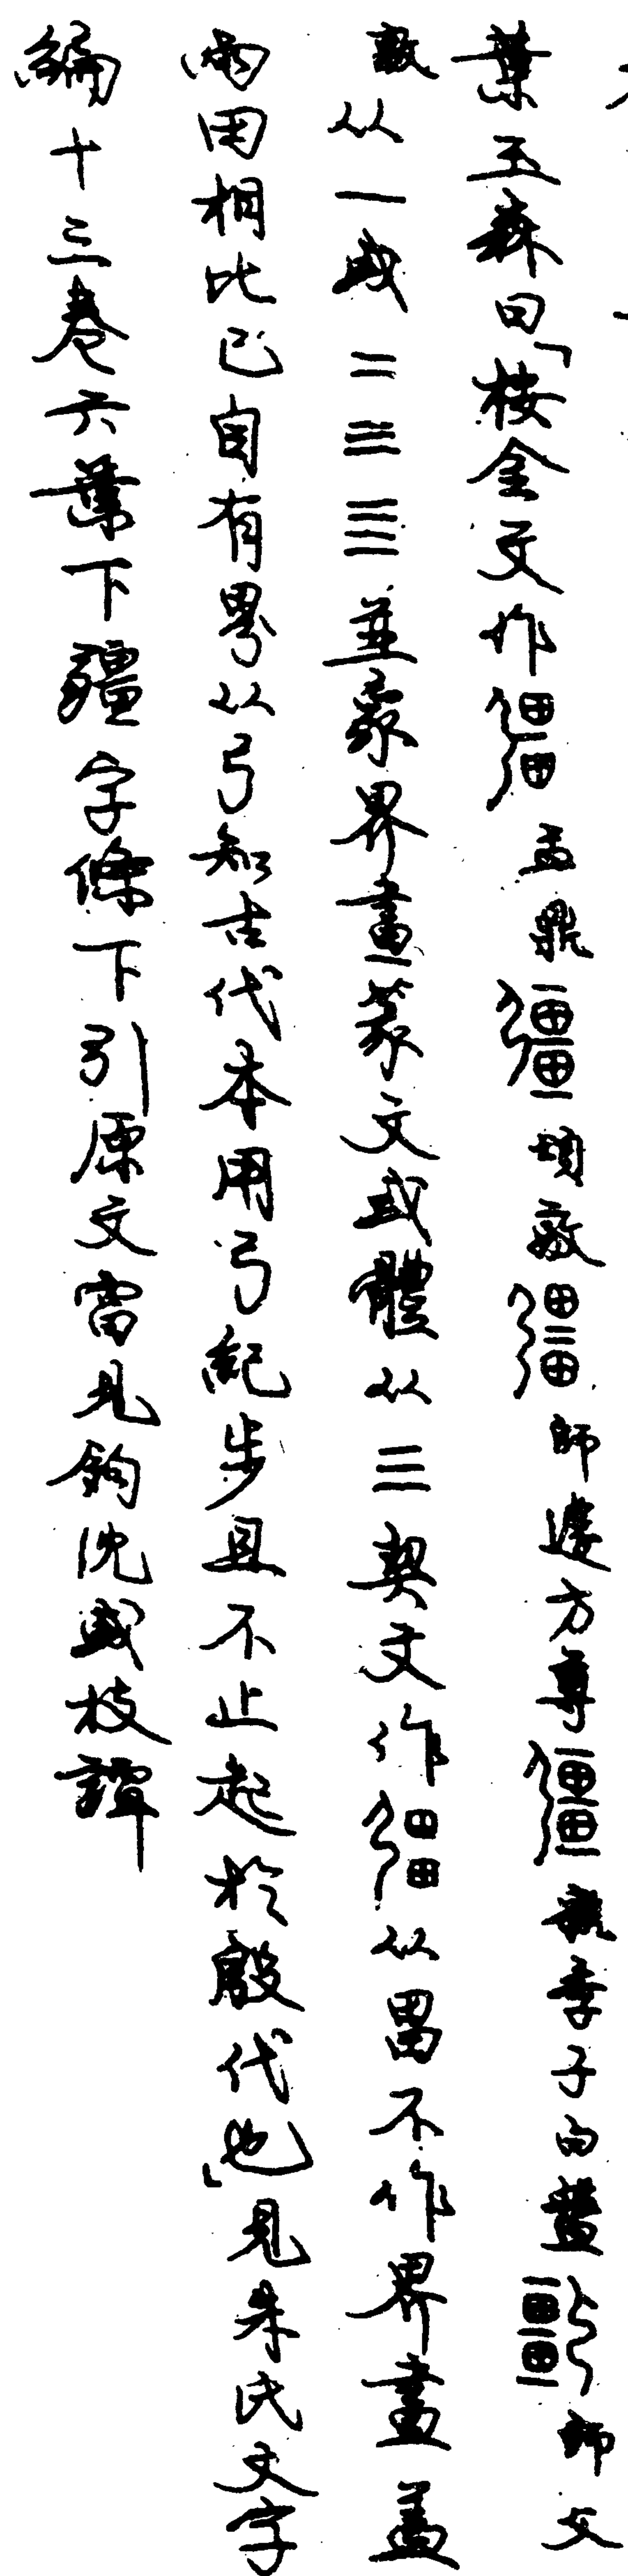 葉玉森曰「桉金文作畺盂鼎彊頌敦彊師遽方尊彊虢季子白盤彊師㝨
敦从一或二三亖並象界畫篆文或體从三契文作弜从畕不作界畫蓋
兩田相比已自有界从弓知古代本用弓紀步且不止起於殷代也」見朱氏文字
編十三卷六葉下疆字條下引原文當見鉤沈或枝譚